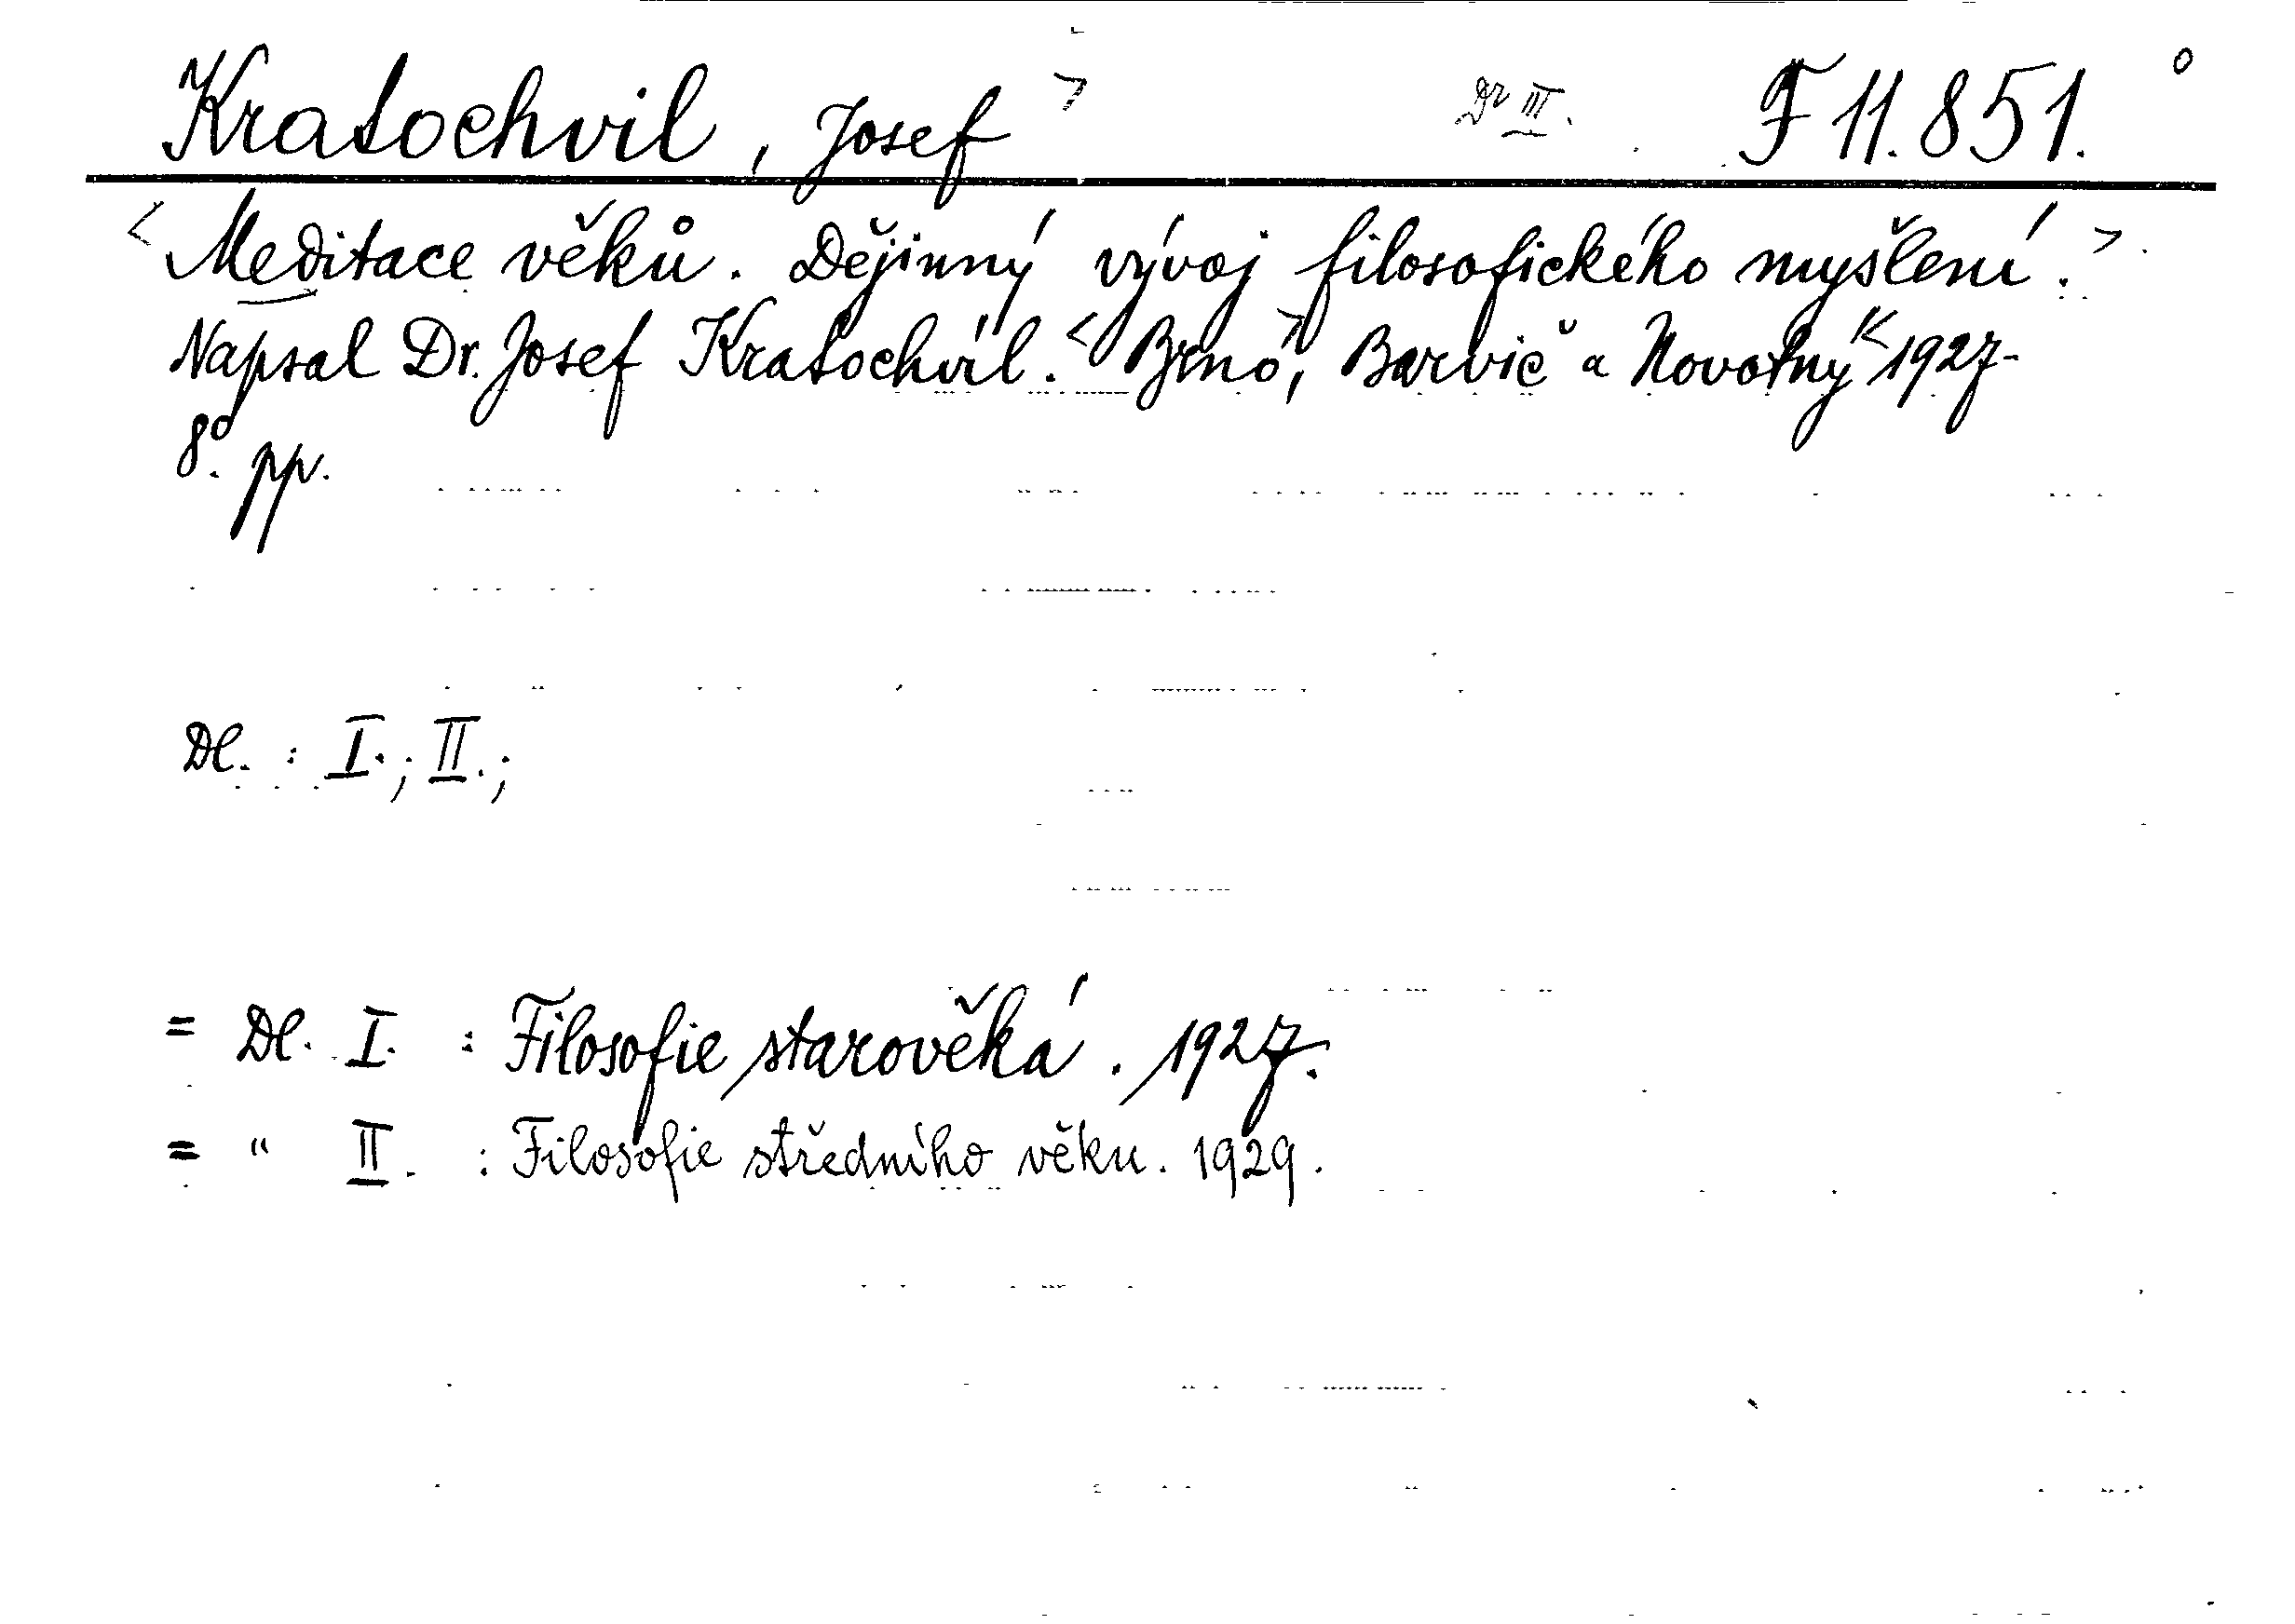 Kratochvil, Josef > Dr III. F 11.851.°
<Meditace věků. Dějinný vývoj filosofického myšlení.>
Napsal Dr. Josef Kratochvíl. <Brno>, Barvič a Novotný < 1927-
8°. pp.
Dl. : I.; II.;
= Dl. I. : Filosofie starověká. 1927.
= " II. : Filosofie středního věku. 1929.